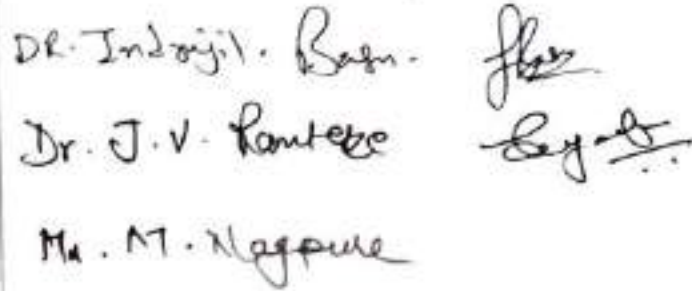 DR. Indrajil. Basu.
Dr. J. V. Ramteke
Mr. M. Nagpure